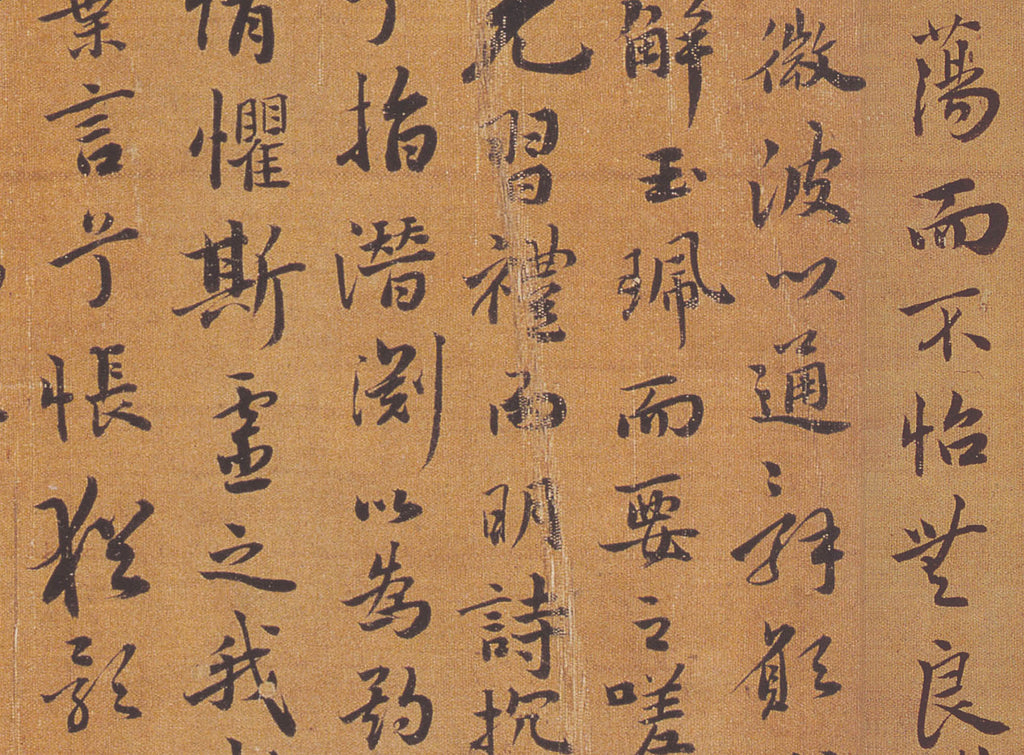 蕩而不怡無良
微波以通辭願
解玉珮而要之嗟
羌習禮而明詩抗
兮指潛淵以為期
情懼斯靈之我
棄言兮悵猶豫